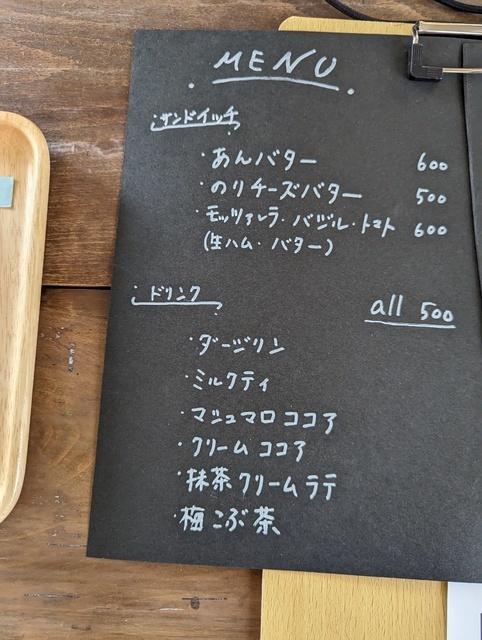 MENU
・サンドイッチ
・あんバター 600
・のりチーズバター 500
・モッツァレラ・バジル・トマト 600
(生ハム・バター)
・ドリンク all 500
・ダージリン
・ミルクティ
・マシュマロココア
・クリームココア
・抹茶クリームラテ
・梅こぶ茶